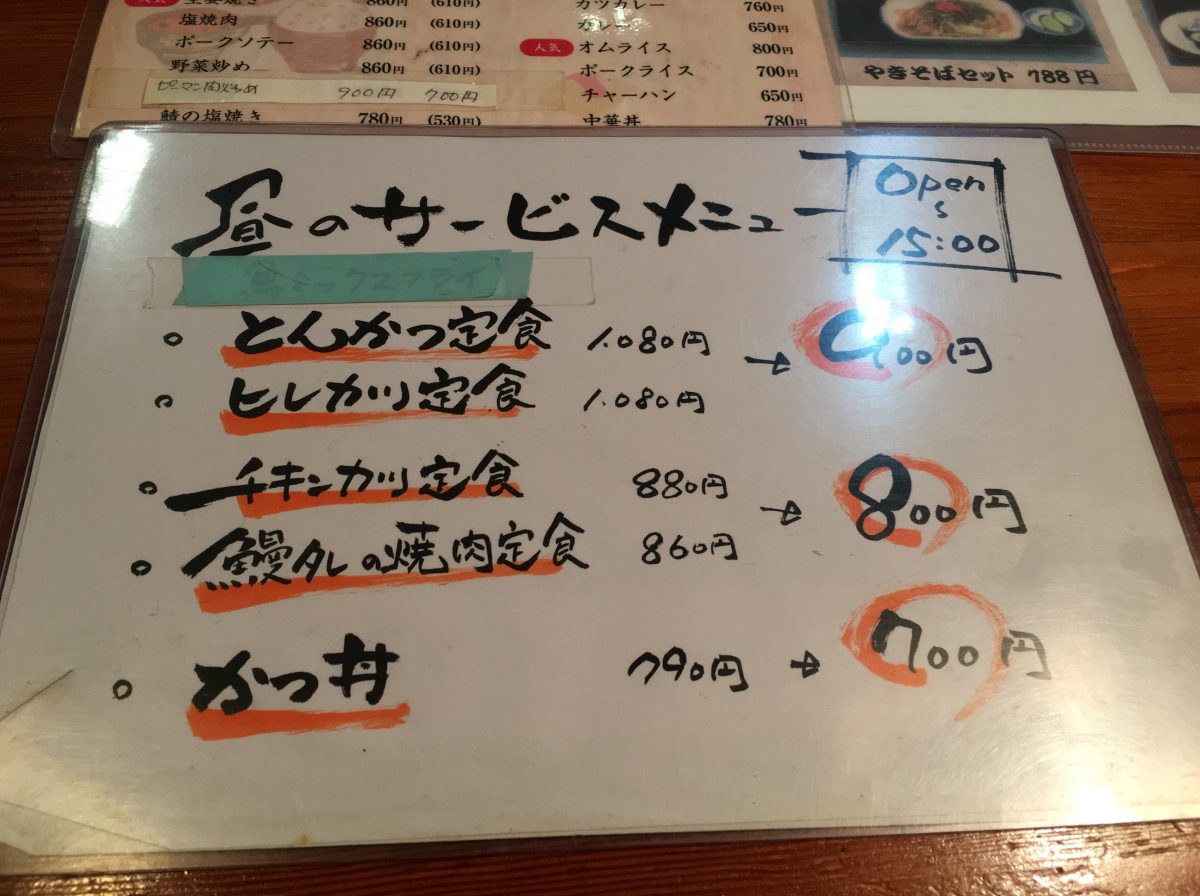 生姜焼き 860円 (610円)
塩焼肉 860円 (610円)
ポークソテー 860円 (610円)
野菜炒め 860円 (610円)
ピーマン肉炒め 900円 700円
鯖の塩焼き 780円 (530円)
人気
カツカレー 760円
カレー 650円
人気 オムライス 800円
ポークライス 700円
チャーハン 650円
中華丼 780円
やきそばセット 788円
昼のサービスメニュー
Open
〜
15:00
とんかつ定食 1.080円 → 900円
ヒレカツ定食 1.080円
チキンカツ定食 880円 → 800円
鰻タレの焼肉定食 860円
かつ丼 790円 → 700円